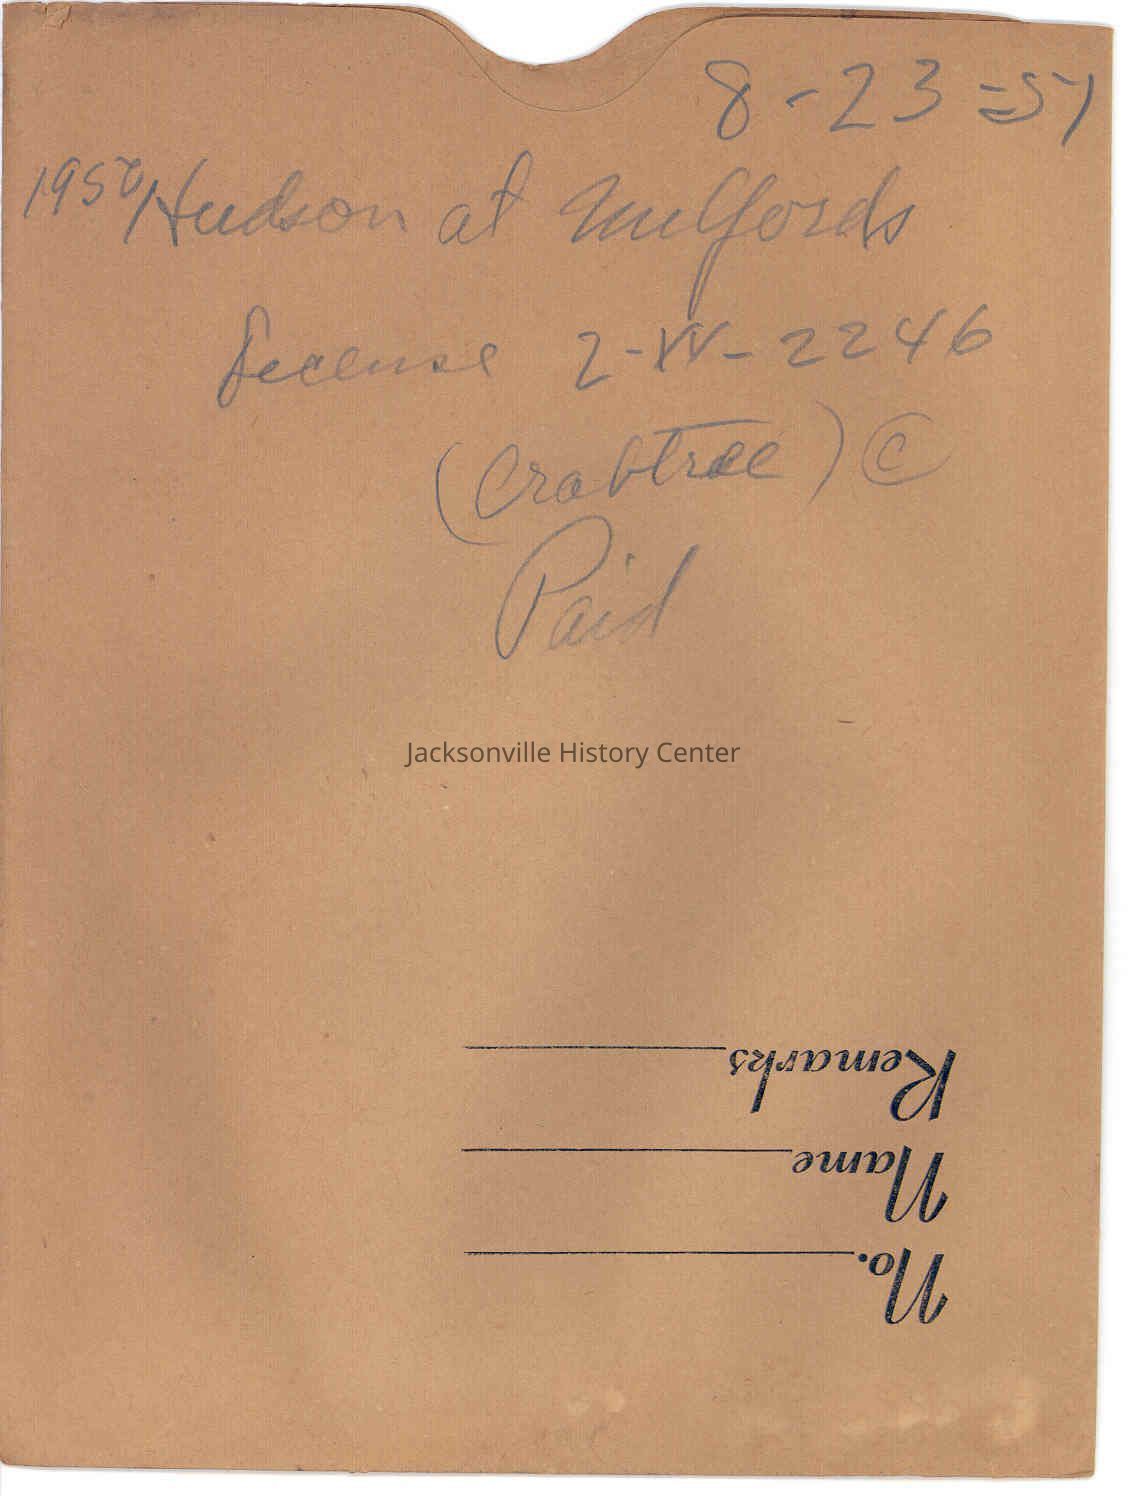 8-23=57
Hudson at Mulfords
License 2-W-2246
(Crabtree) ©
Paid
Jacksonville History Center
Remarks
Name
No.